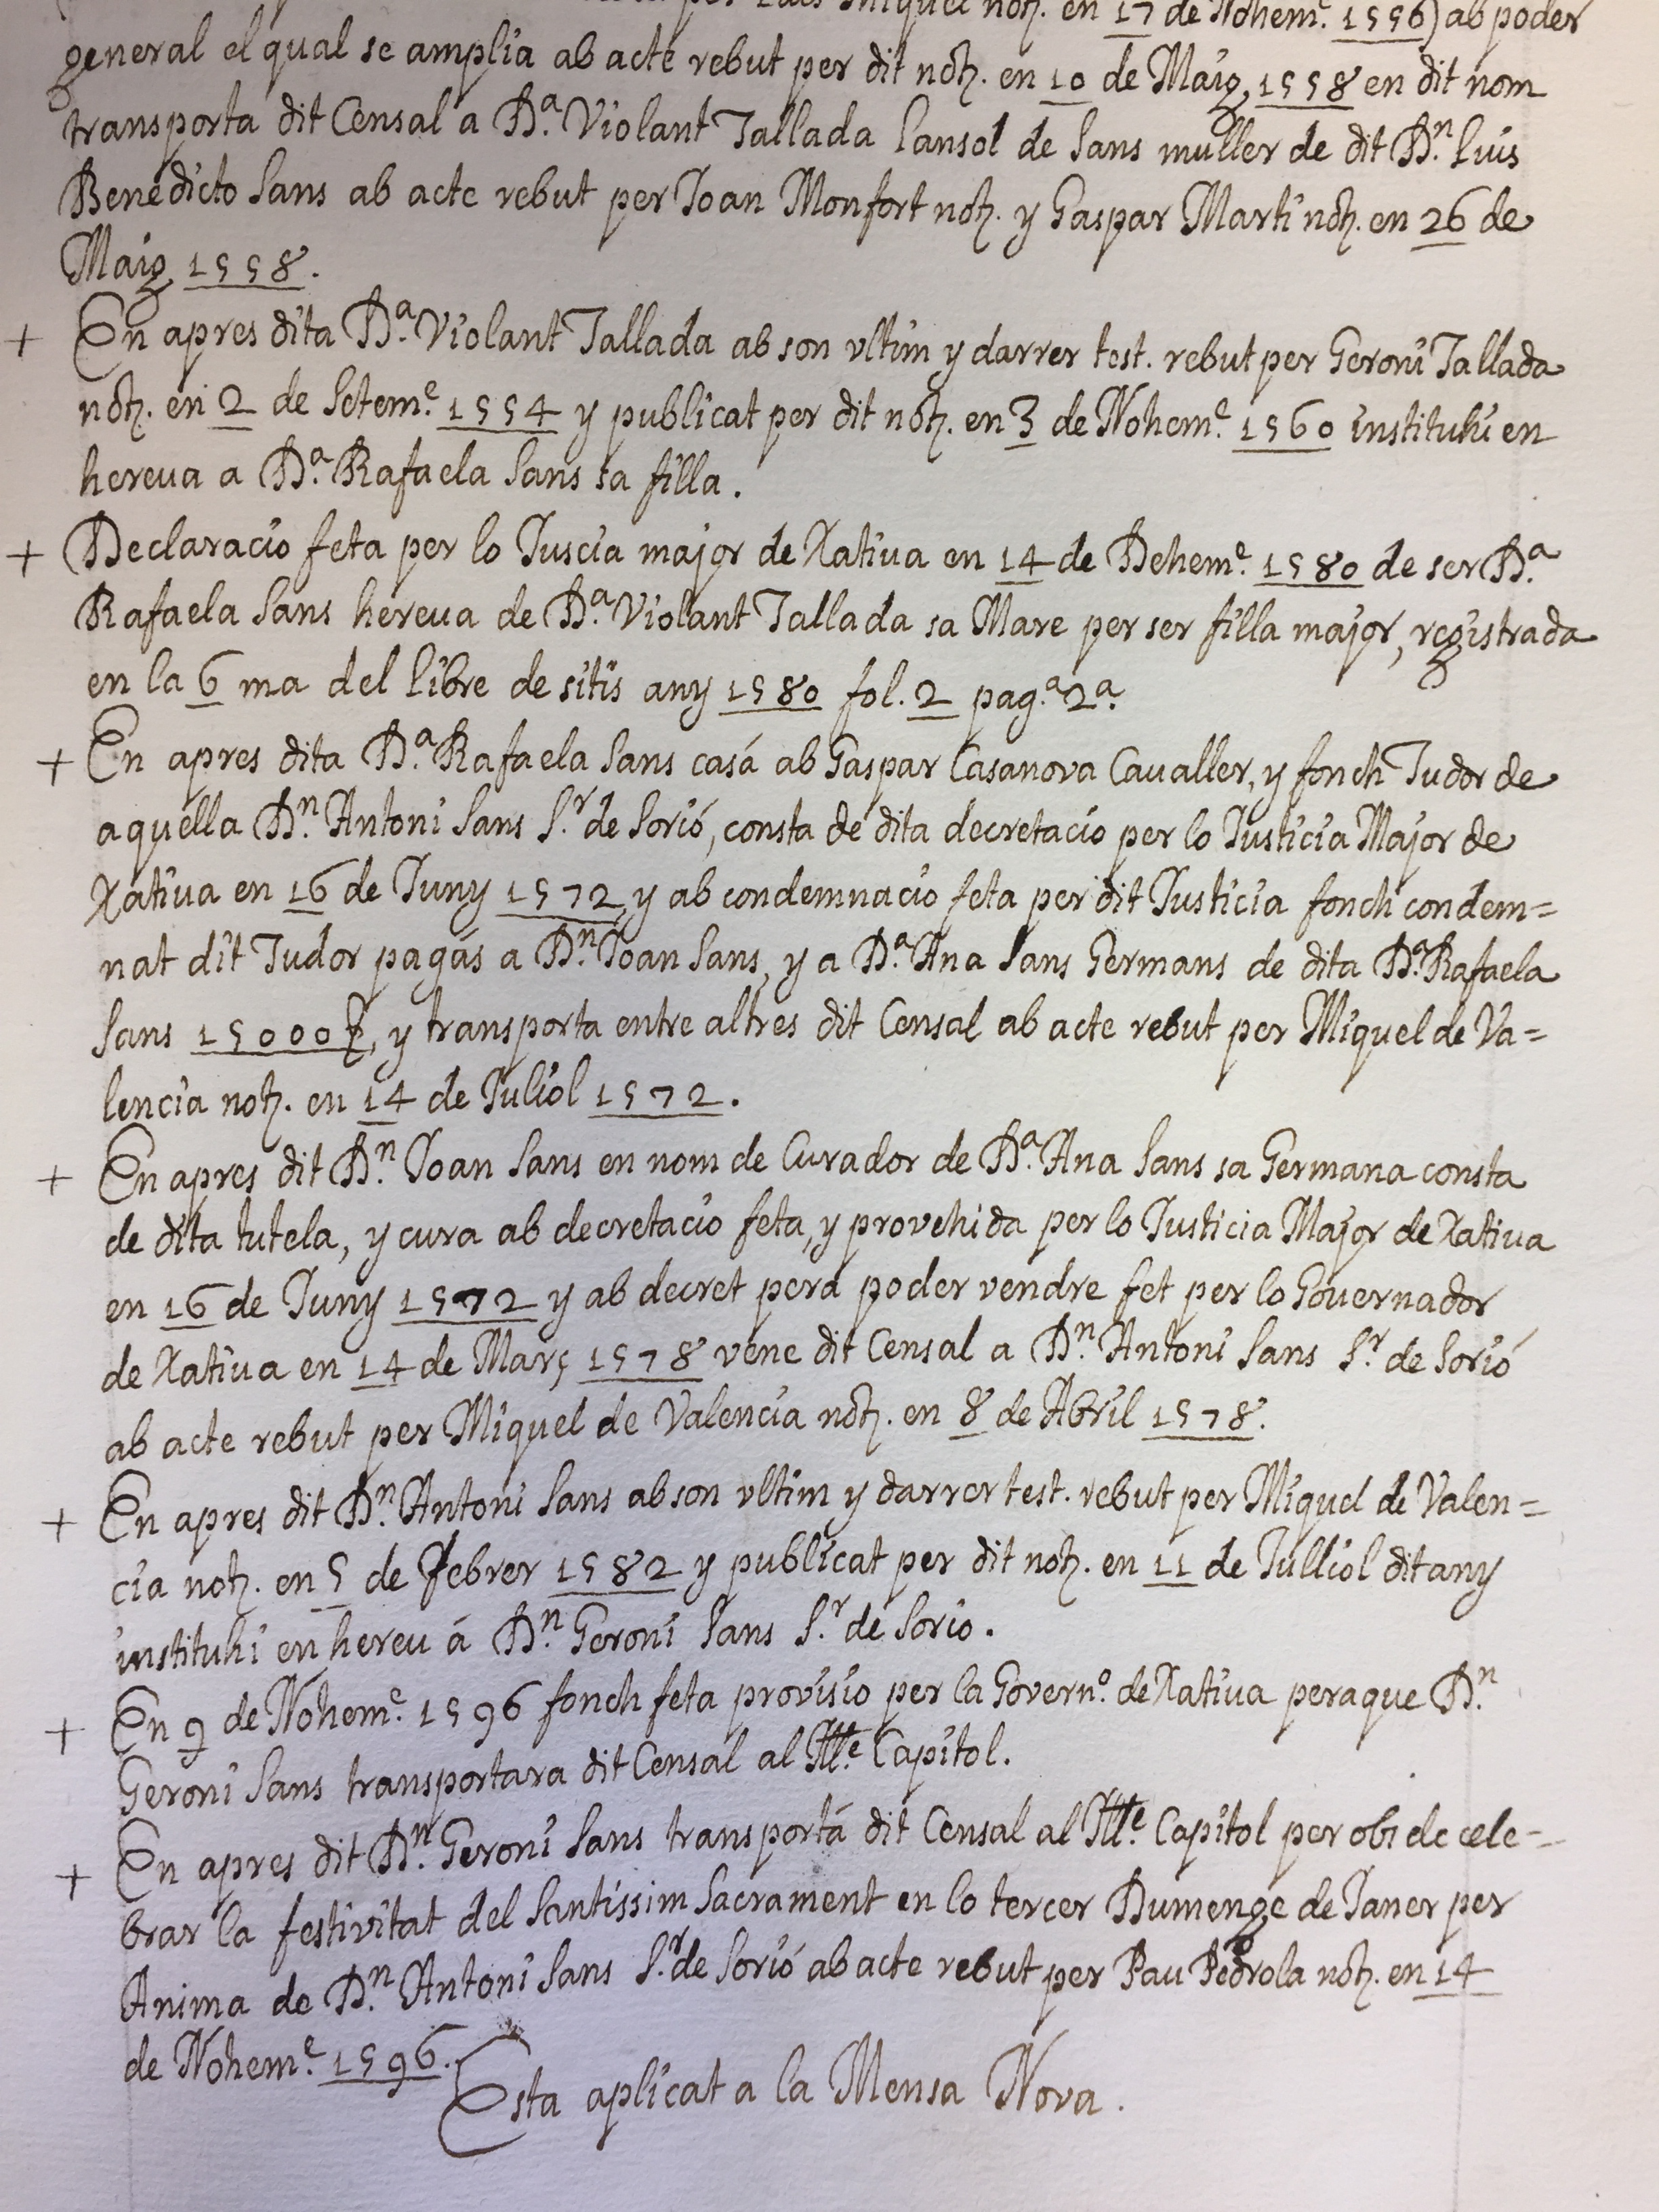 not. en 17 de Nohem.e 1556) ab poder
general el qual se amplia ab acte rebut per dit not. en 10 de Maig, 1558 en dit nom
transporta dit Censal a D.a Violant Tallada Sansol de Sans muller de dit D.n Luis
Benedicto Sans ab acte rebut per Joan Monfort not. y Gaspar Marti not. en 26 de
Maig 1558.
+ En apres dita D.a Violant Tallada ab son vltim y darrer test. rebut per Geroni Tallada
not. en 2 de Setem.e 1554 y publicat per dit not. en 3 de Nohem.e 1560 instituhi en
hereua a D.a Rafaela Sans sa filla.
+ Declaracio feta per lo Juscia major de Xatiua en 14 de Dehem.e 1580 de ser D.a
Rafaela Sans hereua de D.a Violant Tallada sa Mare per ser filla major, registrada
en la 6 ma del libre de sitis any 1580 fol. 2 pag.a 2.a
+ En apres dita D.a Rafaela Sans casá ab Gaspar Casanova Caualler, y fonch Tudor de
aquella D.n Antoni Sans S.r de Sorió, consta de dita decretacio per lo Justicia Major de
Xatiua en 16 de Juny 1572, y ab condemnacio feta per dit Justicia fonch condem=
nat dit Tudor pagás a D.n Joan Sans, y a D.a Ana Sans Germans de dita D.a Rafaela
Sans 15000 ₶, y transporta entre altres dit Censal ab acte rebut per Miquel de Va=
lencia not. en 14 de Juliol 1572.
+ En apres dit D.n Joan Sans en nom de Curador de D.a Ana Sans sa Germana consta
de dita tutela, y cura ab decretacio feta, y provehida per lo Justicia Major de Xatiua
en 16 de Juny 1572 y ab decret pera poder vendre fet per lo Gouernador
de Xatiua en 14 de Març 1578 vene dit Censal a D.n Antoni Sans S.r de Sorió
ab acte rebut per Miquel de Valencia not. en 8 de Abril 1578.
+ En apres dit D.n Antoni Sans ab son vltim y darrer test. rebut per Miquel de Valen=
cia not. en 5 de Febrer 1582 y publicat per dit not. en 11 de Julliol dit any
instituhi en hereu á D.n Geroni Sans S.r de Sorio.
+ En 9 de Nohem.e 1596 fonch feta provisio per la Govern.o de Xatiua peraque D.n
Geroni Sans transportara dit Censal al Ille.e Capitol.
+ En apres dit D.n Geroni Sans transportá dit Censal al Ille.e Capitol per obs de cele=
brar la festivitat del Santissim Sacrament en lo tercer Dumenge de Janer per
Anima de D.n Antoni Sans S.r de Sorió ab acte rebut per Pau Pedrola not. en 14
de Nohem.e 1596.
Esta aplicat a la Mensa Nova.